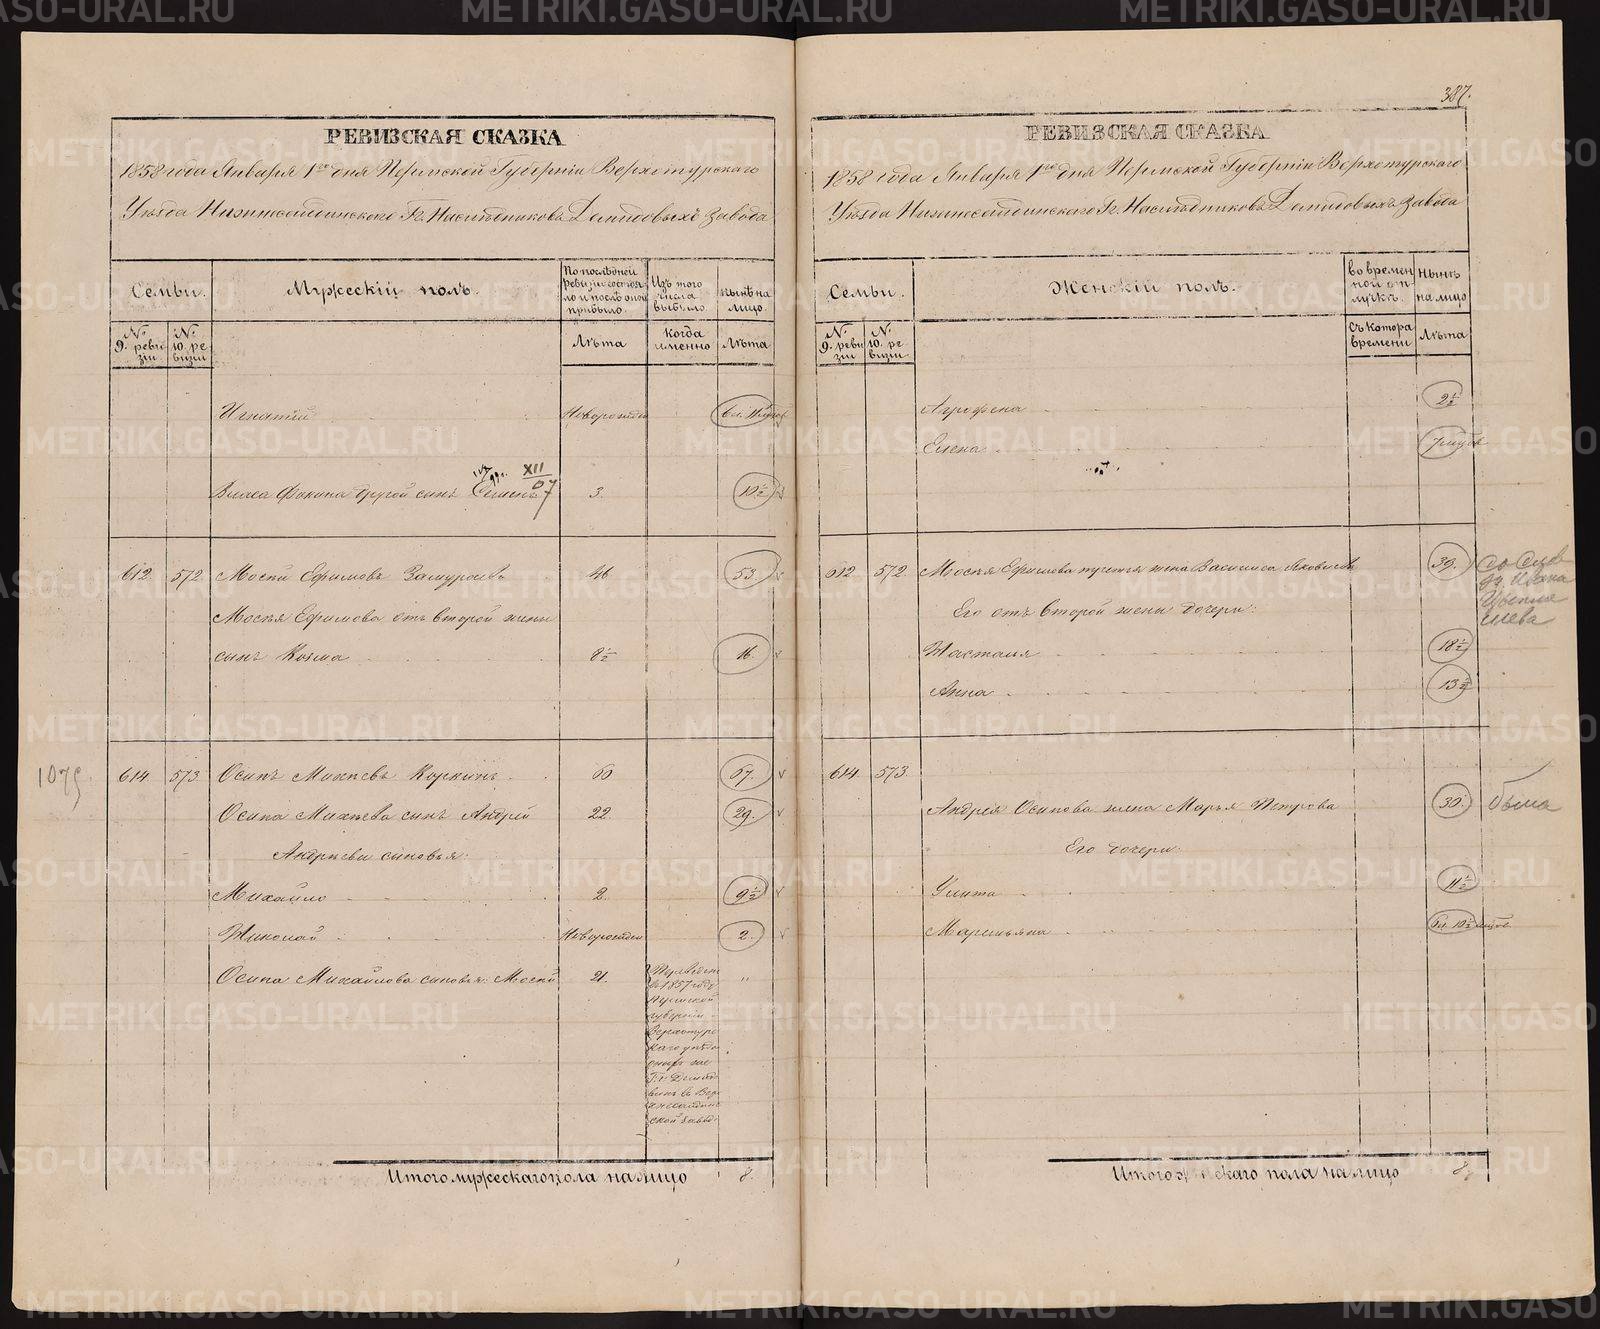 387.
РЕВИЗСКАЯ СКАЗКА
1858 года Января 1го дня Пермской Губернiи Верхотурскаго
Уѣзда Нижнесалдинскаго Гг. Наслѣдниковъ Демидовыхъ завода
Семьи.
Мужескiй полъ.
По послѣдней ревизiи состояло и послѣ оной прибыло.
Изъ того числа выбыло
Нынѣ на лицо.
№ 9. ревизiи
№ 10. ревизiи
Лѣта
Когда именно
Лѣта
Игнатiй
Новорожден
Власа Фокина другой сынъ Семенъ
XII
07
3.
10½
612
572
Мосѣй Ефимовъ Замураевъ
46
53.
Мосѣя Ефимова отъ второй жены
сынъ Козма
8½
16.
1079.
614
573
Осипъ Михѣевъ Коркинъ
60
67.
Осипа Михѣева сынъ Андрей
22
29.
Андрѣевы сыновья:
Михайло
2.
9½
Николай
Новорожден
2.
Осипа Михайлова сыновья: Мосѣй
21.
въ 1857 году
губернiи
Верхотурскаго уѣзда
"
Итого мужескаго пола на лицо
8.
РЕВИЗСКАЯ СКАЗКА
1858 года Января 1го дня Пермской Губернiи Верхотурскаго
Уѣзда Нижнесалдинскаго Гг. Наслѣдниковъ Демидовыхъ завода
Семьи.
Женскiй полъ.
Во временной отлучкѣ.
Нынѣ на лицо
№ 9. ревизiи
№ 10. ревизiи
Съ котора времени
Лѣта
Агрофена
2½
Елена
7 мѣцов
612
572
Мосѣя Ефимова третья жена Василиса Яковлева
39.
Его отъ второй жены дочери:
Настасья
18½
Анна
13½
614
573.
Андрея Осипова жена Марья Петрова
30.
Его дочери:
Улита
11½
Маремьяна
Итого женскаго пола на лицо
8.
METRIKI.GASO-URAL.RU